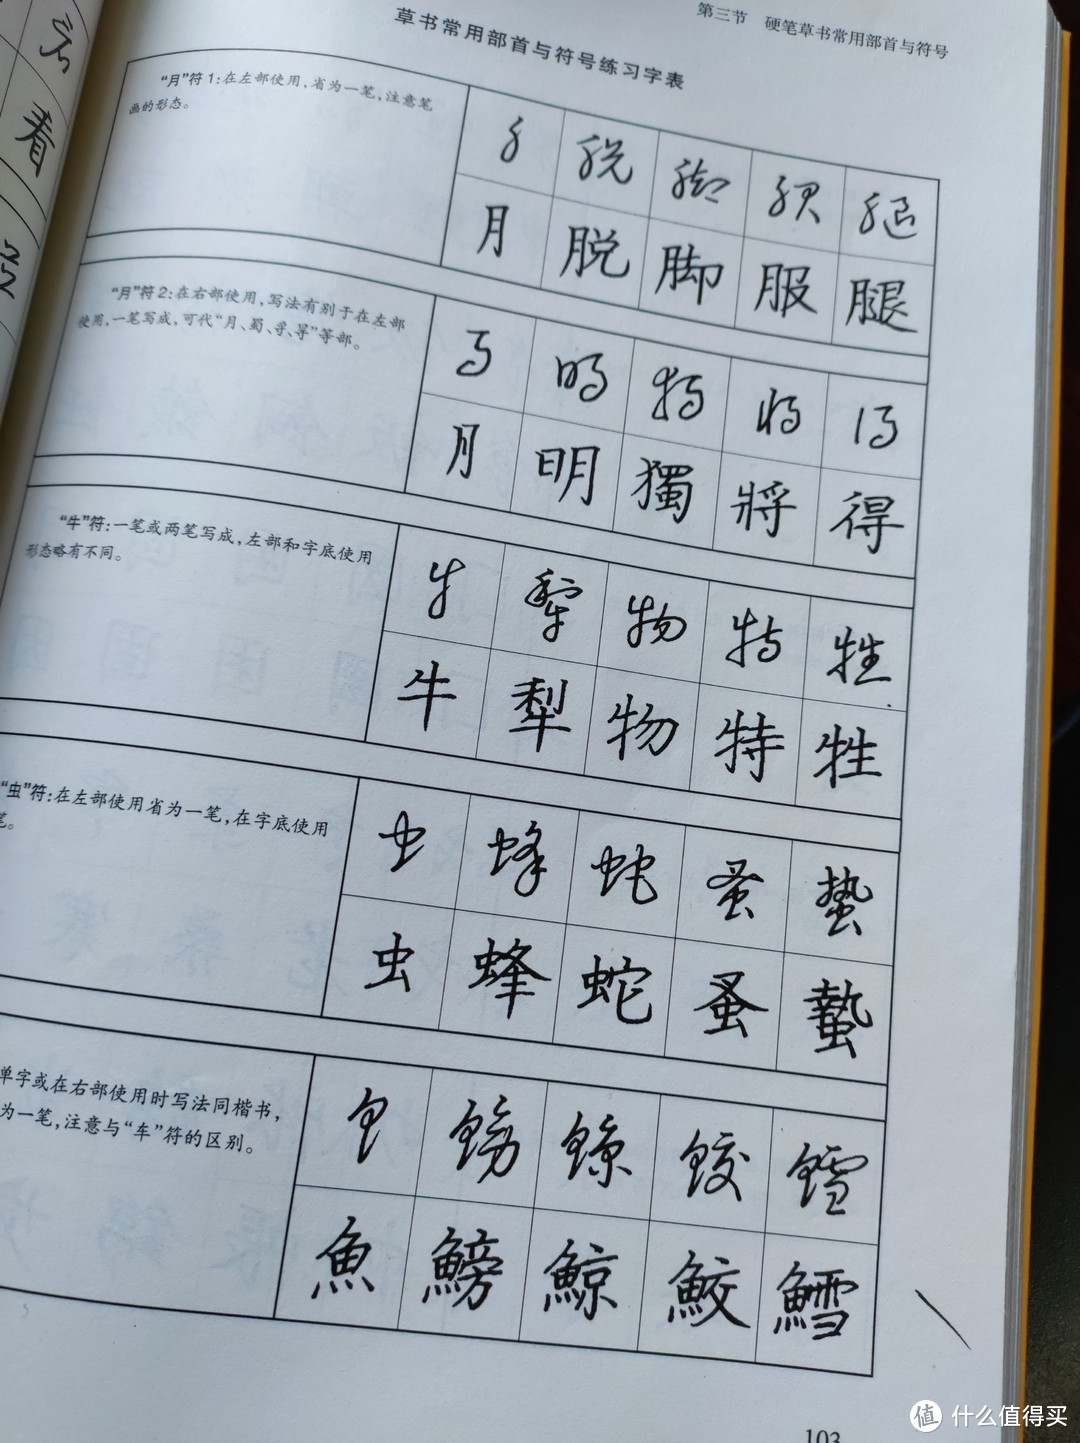 第三节 硬笔草书常用部首与符号
草书常用部首与符号练习字表
“月”符1:在左部使用,省为一笔,注意笔
画的形态。
月 脱 脚 服 腿
月 脱 脚 服 腿
“月”符2:在右部使用,写法有别于在左部
使用,一笔写成,可代“月、蜀、寽、㝵”等部。
月 明 獨 將 得
月 明 獨 將 得
“牛”符:一笔或两笔写成,左部和字底使用
形态略有不同。
牛 犁 物 特 牲
牛 犁 物 特 牲
“虫”符:在左部使用省为一笔,在字底使用
笔。
虫 蜂 蛇 蚤 蛰
虫 蜂 蛇 蚤 蟄
单字或在右部使用时写法同楷书,
为一笔,注意与“车”符的区别。
魚 鰟 鯨 鮫 鱈
魚 鰟 鯨 鮫 鱈
103
值 什么值得买
看